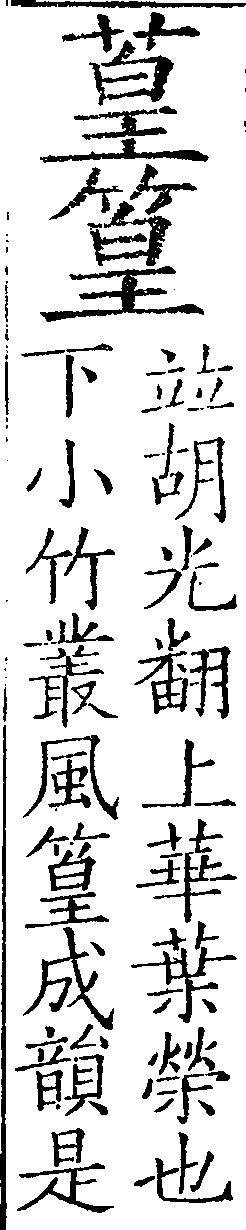 葟篁
並胡光翻上華葉榮也
下小竹叢風篁成韻是